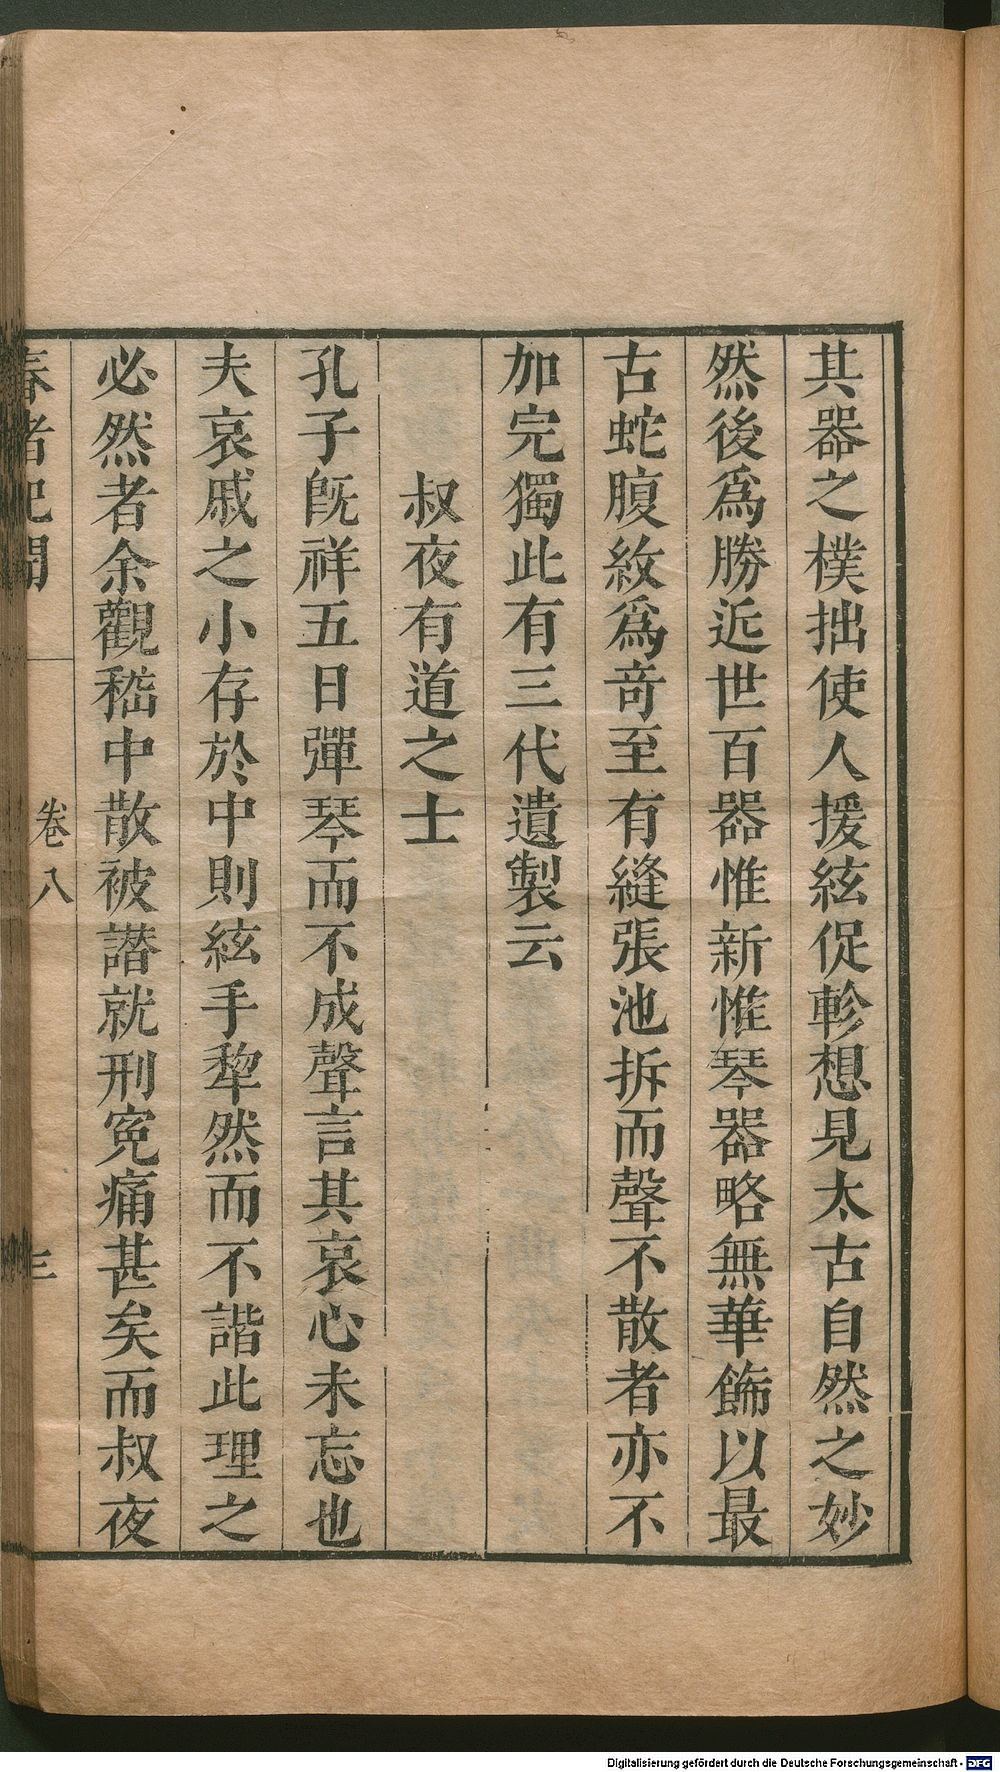 其器之樸拙使人援絃促軫想見太古自然之妙
然後爲勝近世百器惟新惟琴器略無華飾以最
古蛇腹紋爲奇至有縫張池拆而聲不散者亦不
加完獨此有三代遺製云
叔夜有道之士
孔子旣祥五日彈琴而不成聲言其哀心未忘也
夫哀戚之小存於中則絃手犂然而不諧此理之
必然者余觀嵇中散被譖就刑寃痛甚矣而叔夜
春渚紀聞
卷八
三
Digitalisierung gefördert durch die Deutsche Forschungsgemeinschaft - DFG